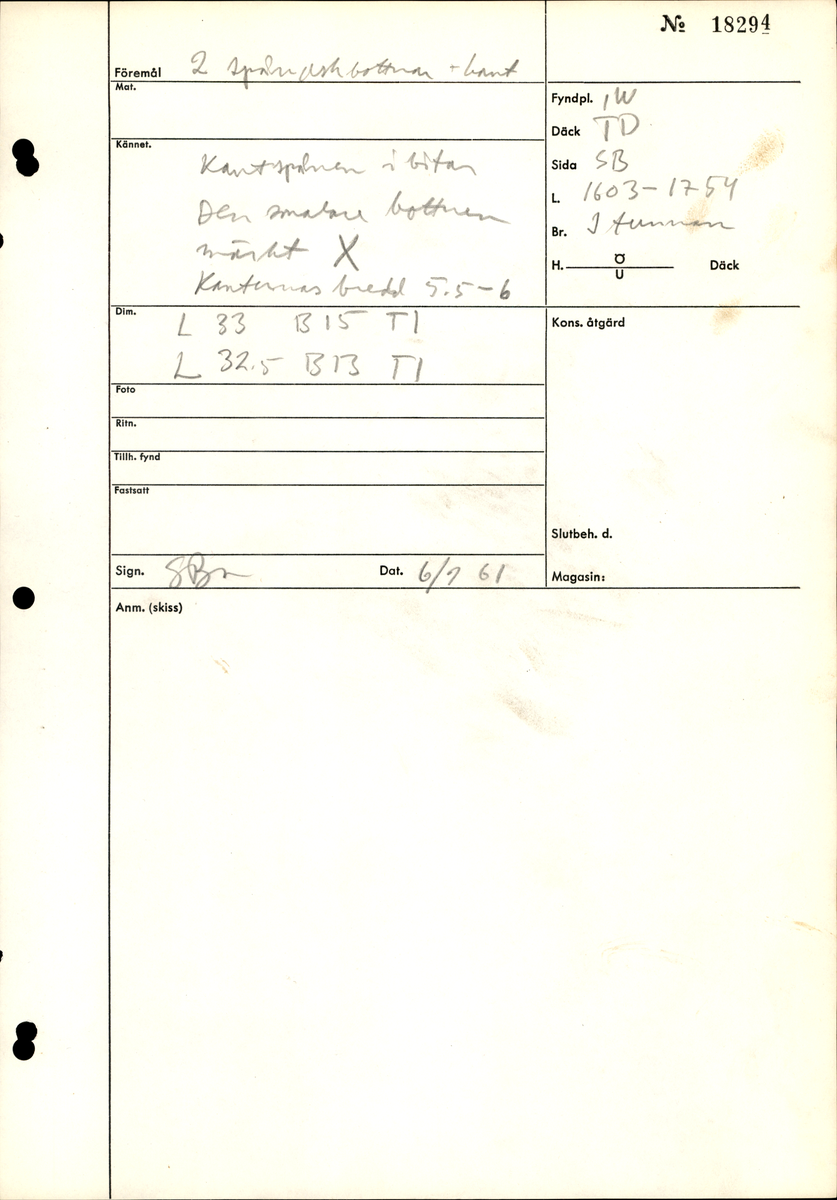 No 18294
Föremål 2 spånaskbottnar + kant
Mat.
Kännet.
Kantspånen i bitar
Den smalare bottnen
märkt X
Kanternas bredd 5.5-6
Dim.
L 33 B 15 T 1
L 32.5 B 13 T 1
Foto
Ritn.
Tillh. fynd
Fastsatt
Sign. SBn Dat. 6/9 61
Fyndpl. IW
Däck TD
Sida SB
L. 1603-1754
Br. I tunnan
H. Ö Däck
U
Kons. åtgärd
Slutbeh. d.
Magasin:
Anm. (skiss)